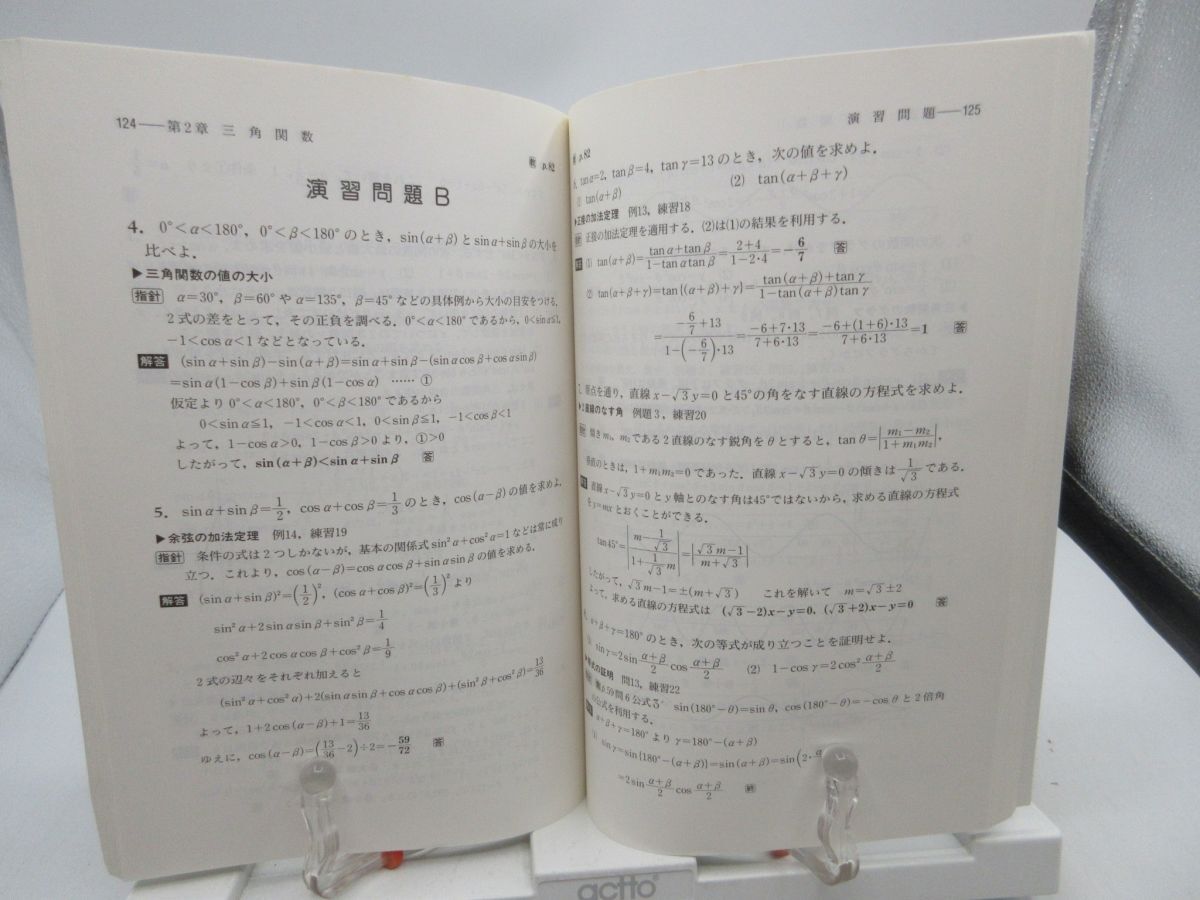 124——第2章 三 角 関 数
教 p.82
演習問題B
4. 0°<α<180°, 0°<β<180°のとき, sin(α+β)とsinα+sinβの大小を
比べよ.
▶三角関数の値の大小
指針 α=30°, β=60°やα=135°, β=45°などの具体例から大小の目安をつける.
2式の差をとって, その正負を調べる. 0°<α<180°であるから, 0<sinα≦1,
-1<cosα<1などとなっている.
解答 (sinα+sinβ)-sin(α+β)=sinα+sinβ-(sinαcosβ+cosαsinβ)
=sinα(1-cosβ)+sinβ(1-cosα) ……①
仮定より0°<α<180°, 0°<β<180°であるから
0<sinα≦1, -1<cosα<1, 0<sinβ≦1, -1<cosβ<1
よって, 1-cosα>0, 1-cosβ>0より, ①>0
したがって, sin(α+β)<sinα+sinβ 答
5. sinα+sinβ=1/2, cosα+cosβ=1/3のとき, cos(α-β)の値を求めよ.
▶余弦の加法定理 例14, 練習19
指針 条件の式は2つしかないが, 基本の関係式sin²α+cos²α=1などは常に成り
立つ. これより, cos(α-β)=cosαcosβ+sinαsinβの値を求める.
解答 (sinα+sinβ)²=(1/2)², (cosα+cosβ)²=(1/3)²より
sin²α+2sinαsinβ+sin²β=1/4
cos²α+2cosαcosβ+cos²β=1/9
2式の辺々をそれぞれ加えると
(sin²α+cos²α)+2(sinαsinβ+cosαcosβ)+(sin²β+cos²β)=13/36
よって, 1+2cos(α-β)+1=13/36
ゆえに, cos(α-β)=(13/36-2)÷2=-59/72 答
演 習 問 題——125
p.82
tanα=2, tanβ=4, tanγ=13のとき, 次の値を求めよ.
tan(α+β) (2) tan(α+β+γ)
▶正接の加法定理 例13, 練習18
正接の加法定理を適用する. (2)は(1)の結果を利用する.
(1) tan(α+β)=(tanα+tanβ)/(1-tanαtanβ)=(2+4)/(1-2・4)=-6/7 答
(2) tan(α+β+γ)=tan{(α+β)+γ}=(tan(α+β)+tanγ)/(1-tan(α+β)tanγ)
=(-6/7+13)/(1-(-6/7)・13)=(-6+7・13)/(7+6・13)=(-6+(1+6)・13)/(7+6・13)=1 答
原点を通り, 直線x-√3y=0と45°の角をなす直線の方程式を求めよ.
▶2直線のなす角 例題3, 練習20
傾きm₁, m₂である2直線のなす鋭角をθとすると, tanθ=|(m₁-m₂)/(1+m₁m₂)|,
垂直のときは, 1+m₁m₂=0であった. 直線x-√3y=0の傾きは1/√3である.
直線x-√3y=0とy軸とのなす角は45°ではないから, 求める直線の方程式
をy=mxとおくことができる.
tan45°=|(m-1/√3)/(1+1/√3 m)|=|(√3m-1)/(m+√3)|
したがって, √3m-1=±(m+√3) これを解いて m=√3±2
よって, 求める直線の方程式は (√3-2)x-y=0, (√3+2)x-y=0 答
α+β+γ=180°のとき, 次の等式が成り立つことを証明せよ.
sinγ=2sin(α+β)/2 cos(α+β)/2 (2) 1-cosγ=2cos²(α+β)/2
▶等式の証明 問13, 練習22
p.59問6公式 sin(180°-θ)=sinθ, cos(180°-θ)=-cosθと2倍角
の公式を利用する.
α+β+γ=180°より γ=180°-(α+β)
sinγ=sin{180°-(α+β)}=sin(α+β)=sin(2・
=2sin(α+β)/2 cos(α+β)/2 終
actto